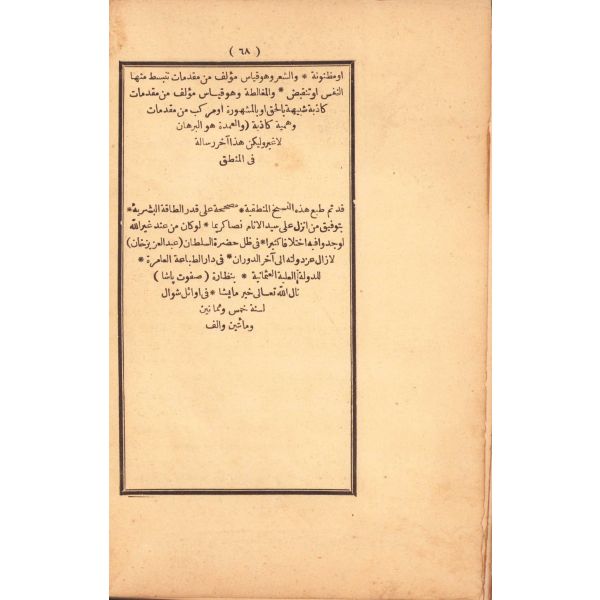 ( ٦٨ )
او مظنونة * والشعر وهو قياس مؤلف من مقدمات تنبسط منها
النفس او تنقبض * والمغالطة وهو قياس مؤلف من مقدمات
كاذبة شبيهة بالحق او بالمشهورة او مركب من مقدمات
وهمية كاذبة (والعمدة هو البرهان
لا غير وليكن هذا آخر رسالة
فى المنطق
قد تم طبع هذه النسخ المنطقية * مصححة على قدر الطاقة البشرية *
بتوفيق من انزل على سيد الانام نصا كريما * لو كان من عند غير الله
لوجدوا فيه اختلافا كثيرا * فى ظل حضرة السلطان (عبد العزيز خان)
لا زال عز دولته الى آخر الدوران * فى دار الطباعة العامرة *
للدولة العلية العثمانية * بنظارة ( صفوت پاشا )
نال الله تعالى خير ما يشا * فى اوائل شوال
لسنة خمس وثمانين
ومائتين والف